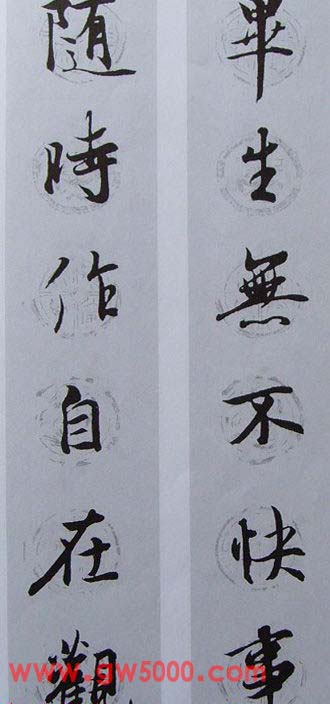 畢生無不快事
隨時作自在觀
www.gw5000.com